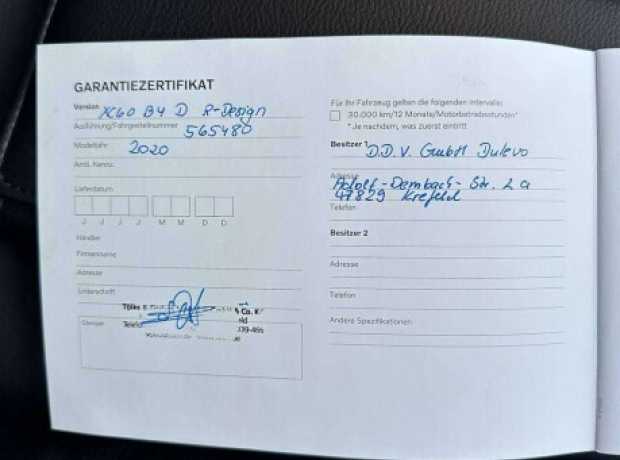 GARANTIEZERTIFIKAT
Version XC60 B4 D R-Design
Ausführung/Fahrgestellnummer 565480
Modelljahr 2020
Amtl. Kennz.
Lieferdatum
J J J J M M D D
Händler
Firmenname
Adresse
Unterschrift
Tölke
& Co. K
Telef
Stempel
Für Ihr Fahrzeug gelten die folgenden Intervalle:
30.000 km/12 Monate/Motorbetriebsstunden*
* Je nachdem, was zuerst eintritt
Besitzer 1 D.D.V. GmbH Dulevo
Adresse Adolf-Dembach-Str. 2a
47829 Krefeld
Telefon
Besitzer 2
Adresse
Telefon
Andere Spezifikationen